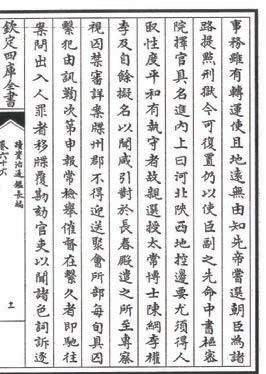 事務雖有轉運使且地遠無由知先帝嘗選朝臣為諸
路提點刑獄今可復置仍以使臣副之先命中書樞密
院擇官具名進内上曰河北陜西地控邊要尤須得人
取性度平和有執守者故親選授太常博士陳綱李權
李及自餘擬名以聞咸引對於長春殿遣之所至專察
視囚禁審詳案牘州郡不得迎送聚會所部每旬具囚
繫犯由訊鞫次第申報常檢舉催督在繫久者即馳往
案問出入人罪者移牒覆勘劾官吏以聞諸色詞訴逐
欽定四庫全書
續資治通鑑長編
卷六十六